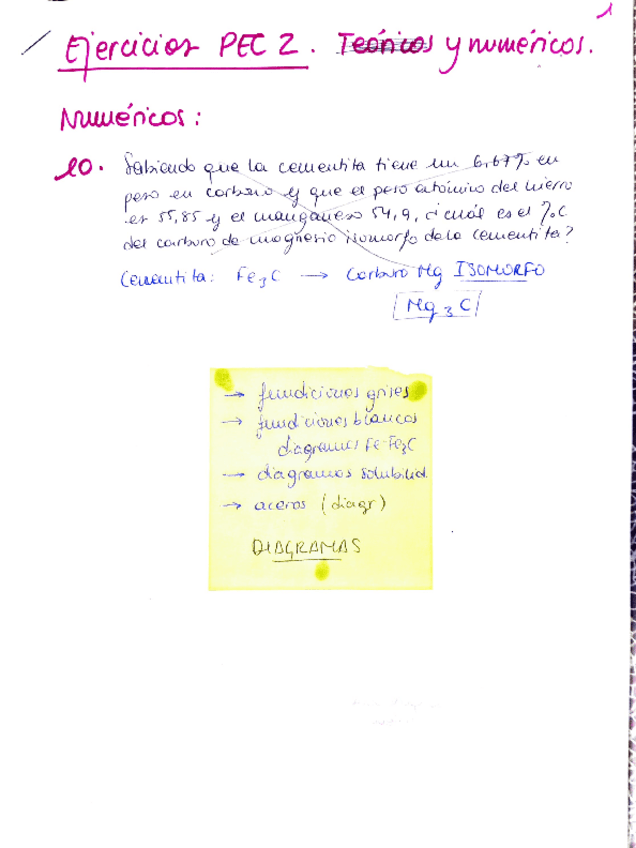 1
Ejercicios PEC 2. Teóricos y numéricos.
Numéricos:
10. Sabiendo que la cementita tiene un 6,67% en
peso en carbono y que el peso atómino del hierro
es 55,85 y el manganeso 54,9, ¿cuál es el %C
del carburo de magnesio isomorfo de la cementita?
Cementita: Fe3C → Carburo Mg ISOMORFO
Mg3C
→ fundiciones grises
→ fundiciones blancas
diagramas Fe-Fe3C
→ diagramas solubilid.
→ aceros (diagr)
DIAGRAMAS